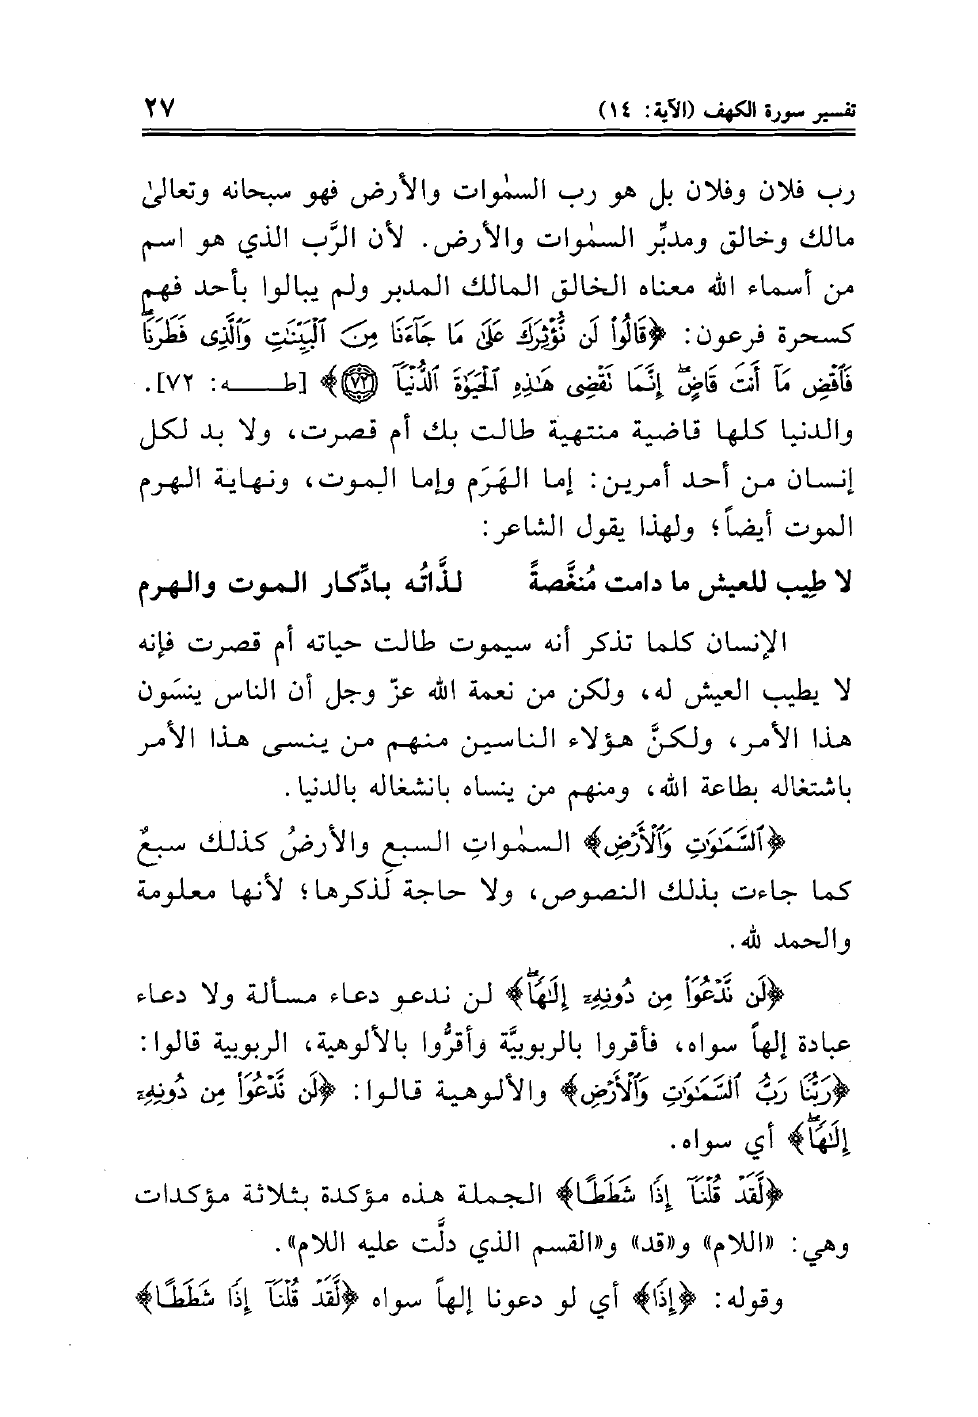 تفسير سورة الكهف (الآية: ١٤) ٢٧
رب فلان وفلان بل هو رب السمٰوات والأرض فهو سبحانه وتعالىٰ
مالك وخالق ومدبِّر السمٰوات والأرض. لأن الرَّب الذي هو اسم
من أسماء الله معناه الخالق المالك المدبر ولم يبالوا بأحد فهم
كسحرة فرعون: ﴿قَالُوا۟ لَن نُّؤْثِرَكَ عَلَىٰ مَا جَآءَنَا مِنَ ٱلْبَيِّنَٰتِ وَٱلَّذِى فَطَرَنَا
فَٱقْضِ مَآ أَنتَ قَاضٍ ۖ إِنَّمَا نَقْضِى هَٰذِهِ ٱلْحَيَوٰةَ ٱلدُّنْيَآ ﴿٧٢﴾﴾ [طـــه: ٧٢].
والدنيا كلها قاضية منتهية طالت بك أم قصرت، ولا بد لكل
إنسان من أحد أمرين: إما الهَرَم وإما الموت، ونهاية الهرم
الموت أيضاً؛ ولهذا يقول الشاعر:
لا طِيب للعيش ما دامت مُنغَّصةً لذَّاتُه بادِّكار الموت والهرم
الإنسان كلما تذكر أنه سيموت طالت حياته أم قصرت فإنه
لا يطيب العيش له، ولكن من نعمة الله عزّ وجل أن الناس ينسَون
هذا الأمر، ولكنَّ هؤلاء الناسين منهم من ينسى هذا الأمر
باشتغاله بطاعة الله، ومنهم من ينساه بانشغاله بالدنيا.
﴿ٱلسَّمَٰوَٰتِ وَٱلْأَرْضِ﴾ السمٰواتِ السبع والأرضُ كذلك سبعٌ
كما جاءت بذلك النصوص، ولا حاجة لَذكرها؛ لأنها معلومة
والحمد لله.
﴿لَن نَّدْعُوَا۟ مِن دُونِهِۦٓ إِلَٰهًا ۖ﴾ لن ندعو دعاء مسألة ولا دعاء
عبادة إلهاً سواه، فأقروا بالربوبيَّة وأقرُّوا بالألوهية، الربوبية قالوا:
﴿رَبُّنَا رَبُّ ٱلسَّمَٰوَٰتِ وَٱلْأَرْضِ﴾ والألوهية قالوا: ﴿لَن نَّدْعُوَا۟ مِن دُونِهِۦٓ
إِلَٰهًا ۖ﴾ أي سواه.
﴿لَّقَدْ قُلْنَآ إِذًا شَطَطًا﴾ الجملة هذه مؤكدة بثلاثة مؤكدات
وهي: «اللام» و«قد» و«القسم الذي دلَّت عليه اللام».
وقوله: ﴿إِذًا﴾ أي لو دعونا إلهاً سواه ﴿لَّقَدْ قُلْنَآ إِذًا شَطَطًا﴾